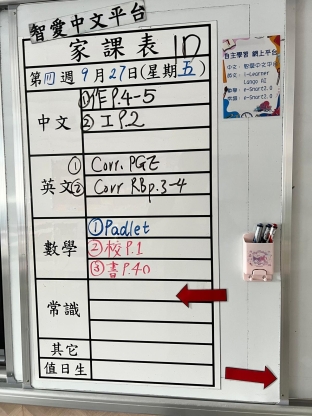 智愛中文平台
家課表 1D
第四週9月27日(星期五)
中文
①作P.4-5
②工P.2
英文
① Corr. PGZ
② Corr RBp.3-4
數學
①Padlet
②校P.1
③書P.40
常識
其它
值日生
自主學習 網上平台
中文：智愛中文平台
英文：i-Learner
Lango AI
數學：e-Smart2.0
常識：e-Smart2.0